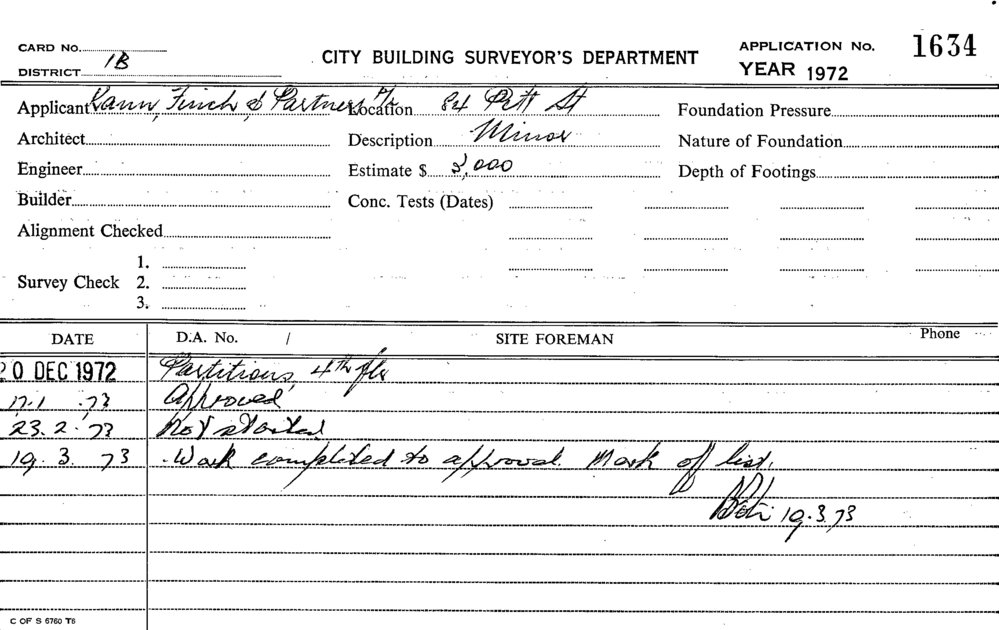 CARD No.
DISTRICT 1B
CITY BUILDING SURVEYOR'S DEPARTMENT
APPLICATION No. 1634
YEAR 1972
Applicant Kann, Finch & Partners P/L Location 84 Pitt St Foundation Pressure
Architect Description Minor Nature of Foundation
Engineer Estimate $ 2,000 Depth of Footings
Builder Conc. Tests (Dates)
Alignment Checked
1.
Survey Check 2.
3.
DATE D.A. No. / SITE FOREMAN Phone
20 DEC 1972 Partitions, 4th flr
17.1.73 Approved
23.2.73 Not started
19.3.73 Work completed to approval. Mark off list.
19.3.73
C OF S 6760 T6